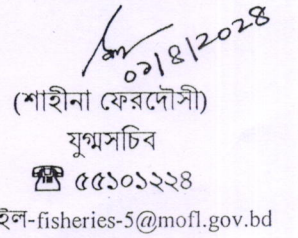 ০১/৪/২০২৪
(শাহীনা ফেরদৌসী)
যুগ্মসচিব
☎ ৫৫১০১২২৪
ইল-fisheries-5@mofl.gov.bd